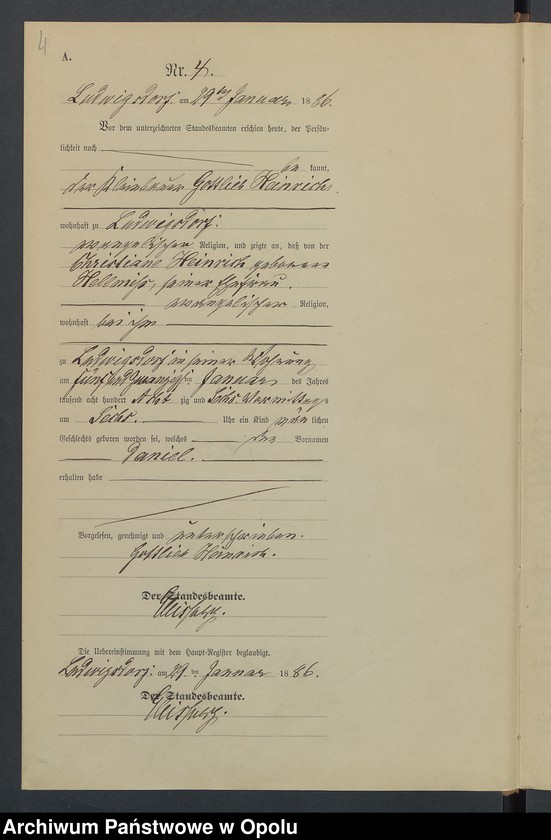 4
A.
Nr. 4.
Ludwigsdorf am 29ten Januar 1886.
Vor dem unterzeichneten Standesbeamten erschien heute, der Persön-
lichkeit nach
be kannt,
der Kleinbauer Gottlieb Heinrich.
wohnhaft zu Ludwigsdorf.
evangelischer Religion, und zeigte an, daß von der
Christiane Heinrich geborene
seiner Ehefrau.
evangelischer Religion,
wohnhaft bei ihm
zu Ludwigsdorf in seiner Wohnung
am fünf und zwanzigsten Januar des Jahres
tausend acht hundert Acht zig und Sechs Vormittags
um Sechs. Uhr ein Kind männ lichen
Geschlechts geboren worden sei, welches den Vornamen
Daniel.
erhalten habe
Vorgelesen, genehmigt und unterschrieben.
Gottlieb Heinrich.
Der Standesbeamte.
Die Uebereinstimmung mit dem Haupt-Register beglaubigt.
Ludwigsdorf am 29. ten Januar 1886.
Der Standesbeamte.
Archiwum Państwowe w Opolu